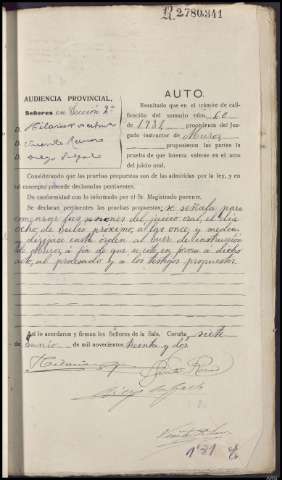 R. 2780.341
AUDIENCIA PROVINCIAL,
Señores en Sección 2ª
D. Hilario
D. Vicente
D. Diego
AUTO.
Resultado que en el trámite de cali-
ficación del sumario núm. 60
de 1932 procedente del Juz-
gado instructor de Muros
propusieron las partes la
prueba de que intenta valerse en el acto
del juicio oral.
Considerando que las pruebas propuestas son de las admitidas por la ley, y en
tal concepto procede declararlas pertinentes.
De conformidad con lo informado por el Sr. Magistrado ponente.
Se declaran pertinentes las pruebas propuestas; se señala para
comenzar las sesiones del juicio oral, el día
ocho de Julio próximo, a las once, y media,
y diríjase carta orden al Juez de Instrucción
de Muros, a fin de que cite en forma a dicho
acto, al procesado y a los testigos propuestos.
Así lo acordaron y firman los Señores de la Sala. Coruña, siete
de Junio de mil novecientos treinta y dos